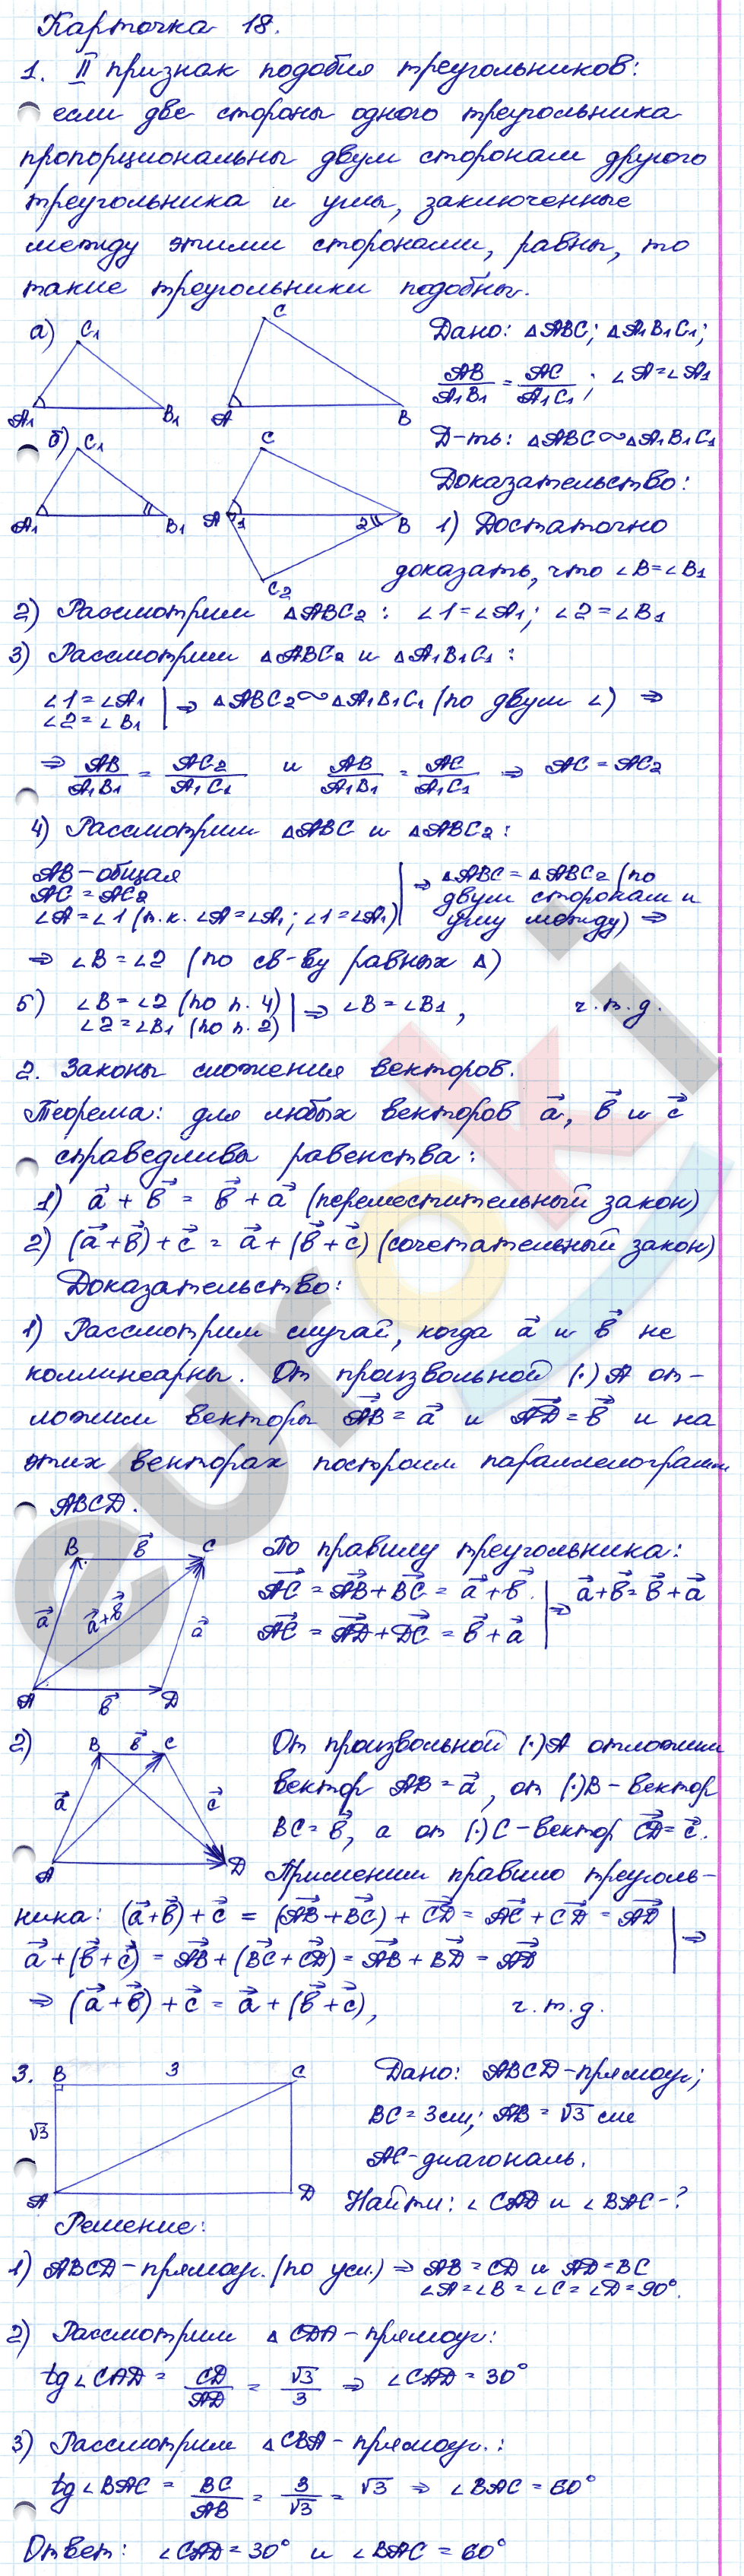 Карточка 18.
1. II признак подобия треугольников:
если две стороны одного треугольника
пропорциональны двум сторонам другого
треугольника и углы, заключенные
между этими сторонами, равны, то
такие треугольники подобны.
а) C₁ A₁ B₁ C A B
Дано: △ABC; △A₁B₁C₁;
AB/A₁B₁ = AC/A₁C₁; ∠A=∠A₁
Д-ть: △ABC∾△A₁B₁C₁
б) C₁ A₁ B₁ C A 1 2 B C₂
Доказательство:
1) Достаточно
доказать, что ∠B=∠B₁
2) Рассмотрим △ABC₂: ∠1=∠A₁; ∠2=∠B₁
3) Рассмотрим △ABC₂ и △A₁B₁C₁:
∠1=∠A₁
∠2=∠B₁ | ⇒ △ABC₂∾△A₁B₁C₁ (по двум ∠) ⇒
⇒ AB/A₁B₁ = AC₂/A₁C₁ и AB/A₁B₁ = AC/A₁C₁ ⇒ AC = AC₂
4) Рассмотрим △ABC и △ABC₂:
AB – общая
AC = AC₂
∠A=∠1 (т.к. ∠A=∠A₁; ∠1=∠A₁)
⇒ △ABC = △ABC₂ (по
двум сторонам и
углу между) ⇒
⇒ ∠B=∠2 (по св-ву равных △)
5) ∠B=∠2 (по п. 4)
∠2=∠B₁ (по п. 2) | ⇒ ∠B=∠B₁, ч.т.д.
2. Законы сложения векторов.
Теорема: для любых векторов a⃗, b⃗ и c⃗
справедливы равенства:
1) a⃗ + b⃗ = b⃗ + a⃗ (переместительный закон)
2) (a⃗+b⃗)+c⃗ = a⃗+(b⃗+c⃗) (сочетательный закон)
Доказательство:
1) Рассмотрим случай, когда a⃗ и b⃗ не
коллинеарны. От произвольной (·) A от-
ложим векторы AB⃗ = a⃗ и AD⃗ = b⃗ и на
этих векторах построим параллелограмм
ABCD.
B b⃗ C a⃗ a⃗+b⃗ a⃗ A b⃗ D
По правилу треугольника:
AC⃗ = AB⃗+BC⃗ = a⃗+b⃗
AC⃗ = AD⃗+DC⃗ = b⃗+a⃗ | ⇒ a⃗+b⃗=b⃗+a⃗
2) B b⃗ C a⃗ c⃗ A D
От произвольной (·)A отложим
вектор AB=a⃗, от (·)B – вектор
BC=b⃗, а от (·)C – вектор CD⃗=c⃗.
Применим правило треуголь-
ника: (a⃗+b⃗)+c⃗ = (AB⃗+BC⃗)+CD⃗ = AC⃗+CD⃗ = AD⃗
a⃗+(b⃗+c⃗) = AB⃗+(BC⃗+CD⃗) = AB⃗+BD⃗ = AD⃗ | ⇒
⇒ (a⃗+b⃗)+c⃗ = a⃗+(b⃗+c⃗), ч.т.д.
3. B 3 C √3 A D
Дано: ABCD – прямоуг;
BC=3см; AB=√3 см
AC – диагональ.
Найти: ∠CAD и ∠BAC – ?
Решение:
1) ABCD – прямоуг. (по усл.) ⇒ AB=CD и AD=BC
∠A=∠B=∠C=∠D=90°.
2) Рассмотрим △CDA – прямоуг:
tg∠CAD = CD/AD = √3/3 ⇒ ∠CAD=30°
3) Рассмотрим △CBA – прямоуг.:
tg∠BAC = BC/AB = 3/√3 = √3 ⇒ ∠BAC=60°
Ответ: ∠CAD=30° и ∠BAC=60°
euroki